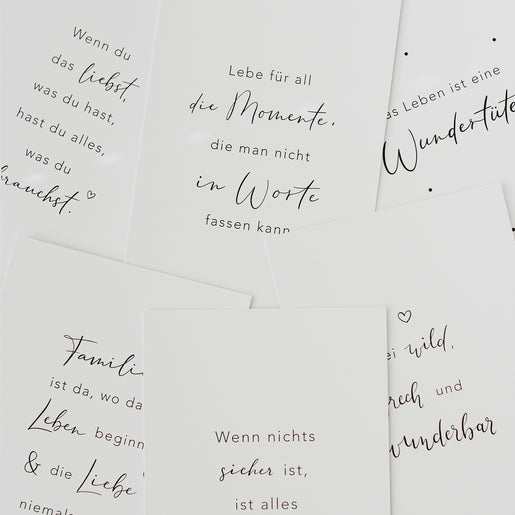 Wenn du
das liebst,
was du hast,
hast du alles,
was du
brauchst.
Lebe für all
die Momente,
die man nicht
in Worte
fassen kann.
as Leben ist eine
Wundertüte
Famili
ist da, wo da
Leben beginn
& die Liebe
niemals
Wenn nichts
sicher ist,
ist alles
ei wild,
rech und
wunderbar